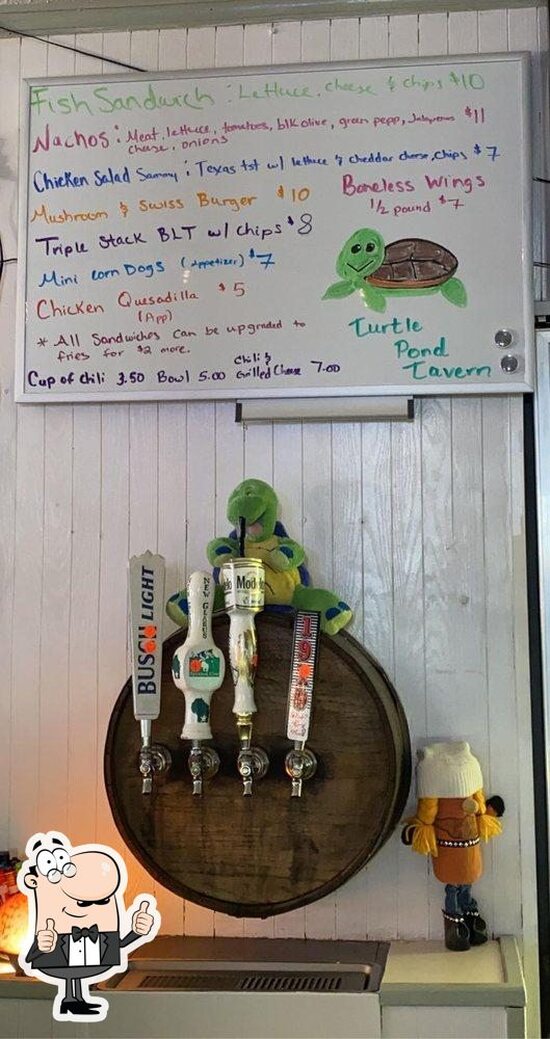 Fish Sandwich : Lettuce, cheese & chips $10
Nachos : Meat, lettuce, tomatoes, blk olive, green pepp, Jalapenos $11
cheese, onions
Chicken Salad Sammy : Texas tst w/ lettuce & cheddar cheese, chips $7
Mushroom & Swiss Burger $10
Boneless Wings
1/2 pound $7
Triple Stack BLT w/ chips $8
Mini Corn Dogs (Appetizer) $7
Chicken Quesadilla $5
(App)
* All Sandwiches can be upgraded to
fries for $2 more.
Turtle
Pond
Tavern
Cup of chili 3.50 Bowl 5.00 Chili &
Grilled Cheese 7.00
BUSCH LIGHT
NEW GLARUS
Modelo
19